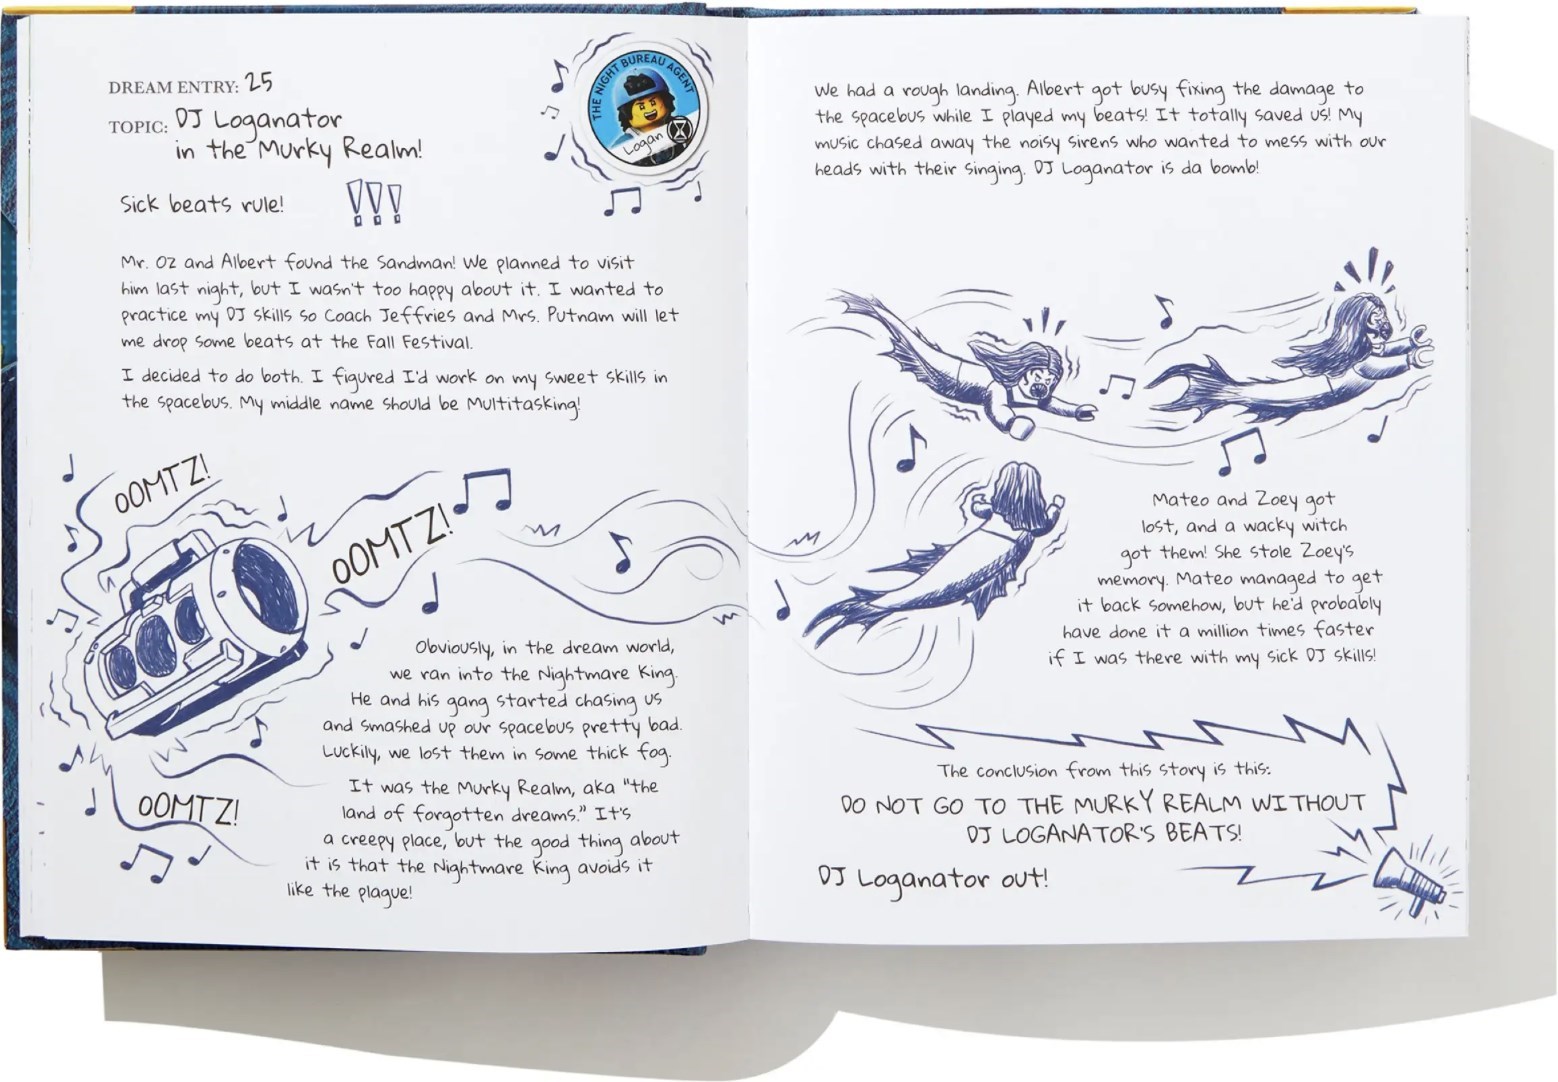 DREAM ENTRY: 25
TOPIC: DJ Loganator
in the Murky Realm!
THE NIGHT BUREAU AGENT
Logan
Sick beats rule! !!!
Mr. Oz and Albert found the Sandman! We planned to visit
him last night, but I wasn't too happy about it. I wanted to
practice my DJ skills so Coach Jeffries and Mrs. Putnam will let
me drop some beats at the Fall Festival.
I decided to do both. I figured I'd work on my sweet skills in
the spacebus. My middle name should be Multitasking!
OOMTZ!
OOMTZ!
Obviously, in the dream world,
we ran into the Nightmare King.
He and his gang started chasing us
and smashed up our spacebus pretty bad.
Luckily, we lost them in some thick fog.
It was the Murky Realm, aka "the
land of forgotten dreams." It's
a creepy place, but the good thing about
it is that the Nightmare King avoids it
like the plague!
OOMTZ!
We had a rough landing. Albert got busy fixing the damage to
the spacebus while I played my beats! It totally saved us! My
music chased away the noisy sirens who wanted to mess with our
heads with their singing. DJ Loganator is da bomb!
Mateo and Zoey got
lost, and a wacky witch
got them! She stole Zoey's
memory. Mateo managed to get
it back somehow, but he'd probably
have done it a million times faster
if I was there with my sick DJ skills!
The conclusion from this story is this:
DO NOT GO TO THE MURKY REALM WITHOUT
DJ LOGANATOR'S BEATS!
DJ Loganator out!